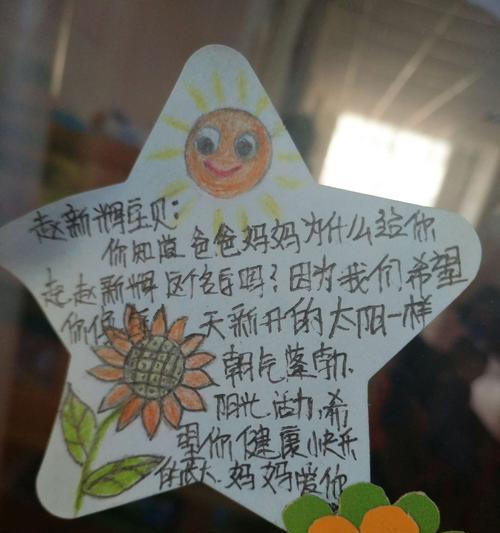 赵新辉宝贝:
你知道爸爸妈妈为什么给你
起赵新辉这个名字吗?因为我们希望
你像天新升的太阳一样
朝气蓬勃.
阳光、活力,希
望你健康快乐
的成长.妈妈爱你